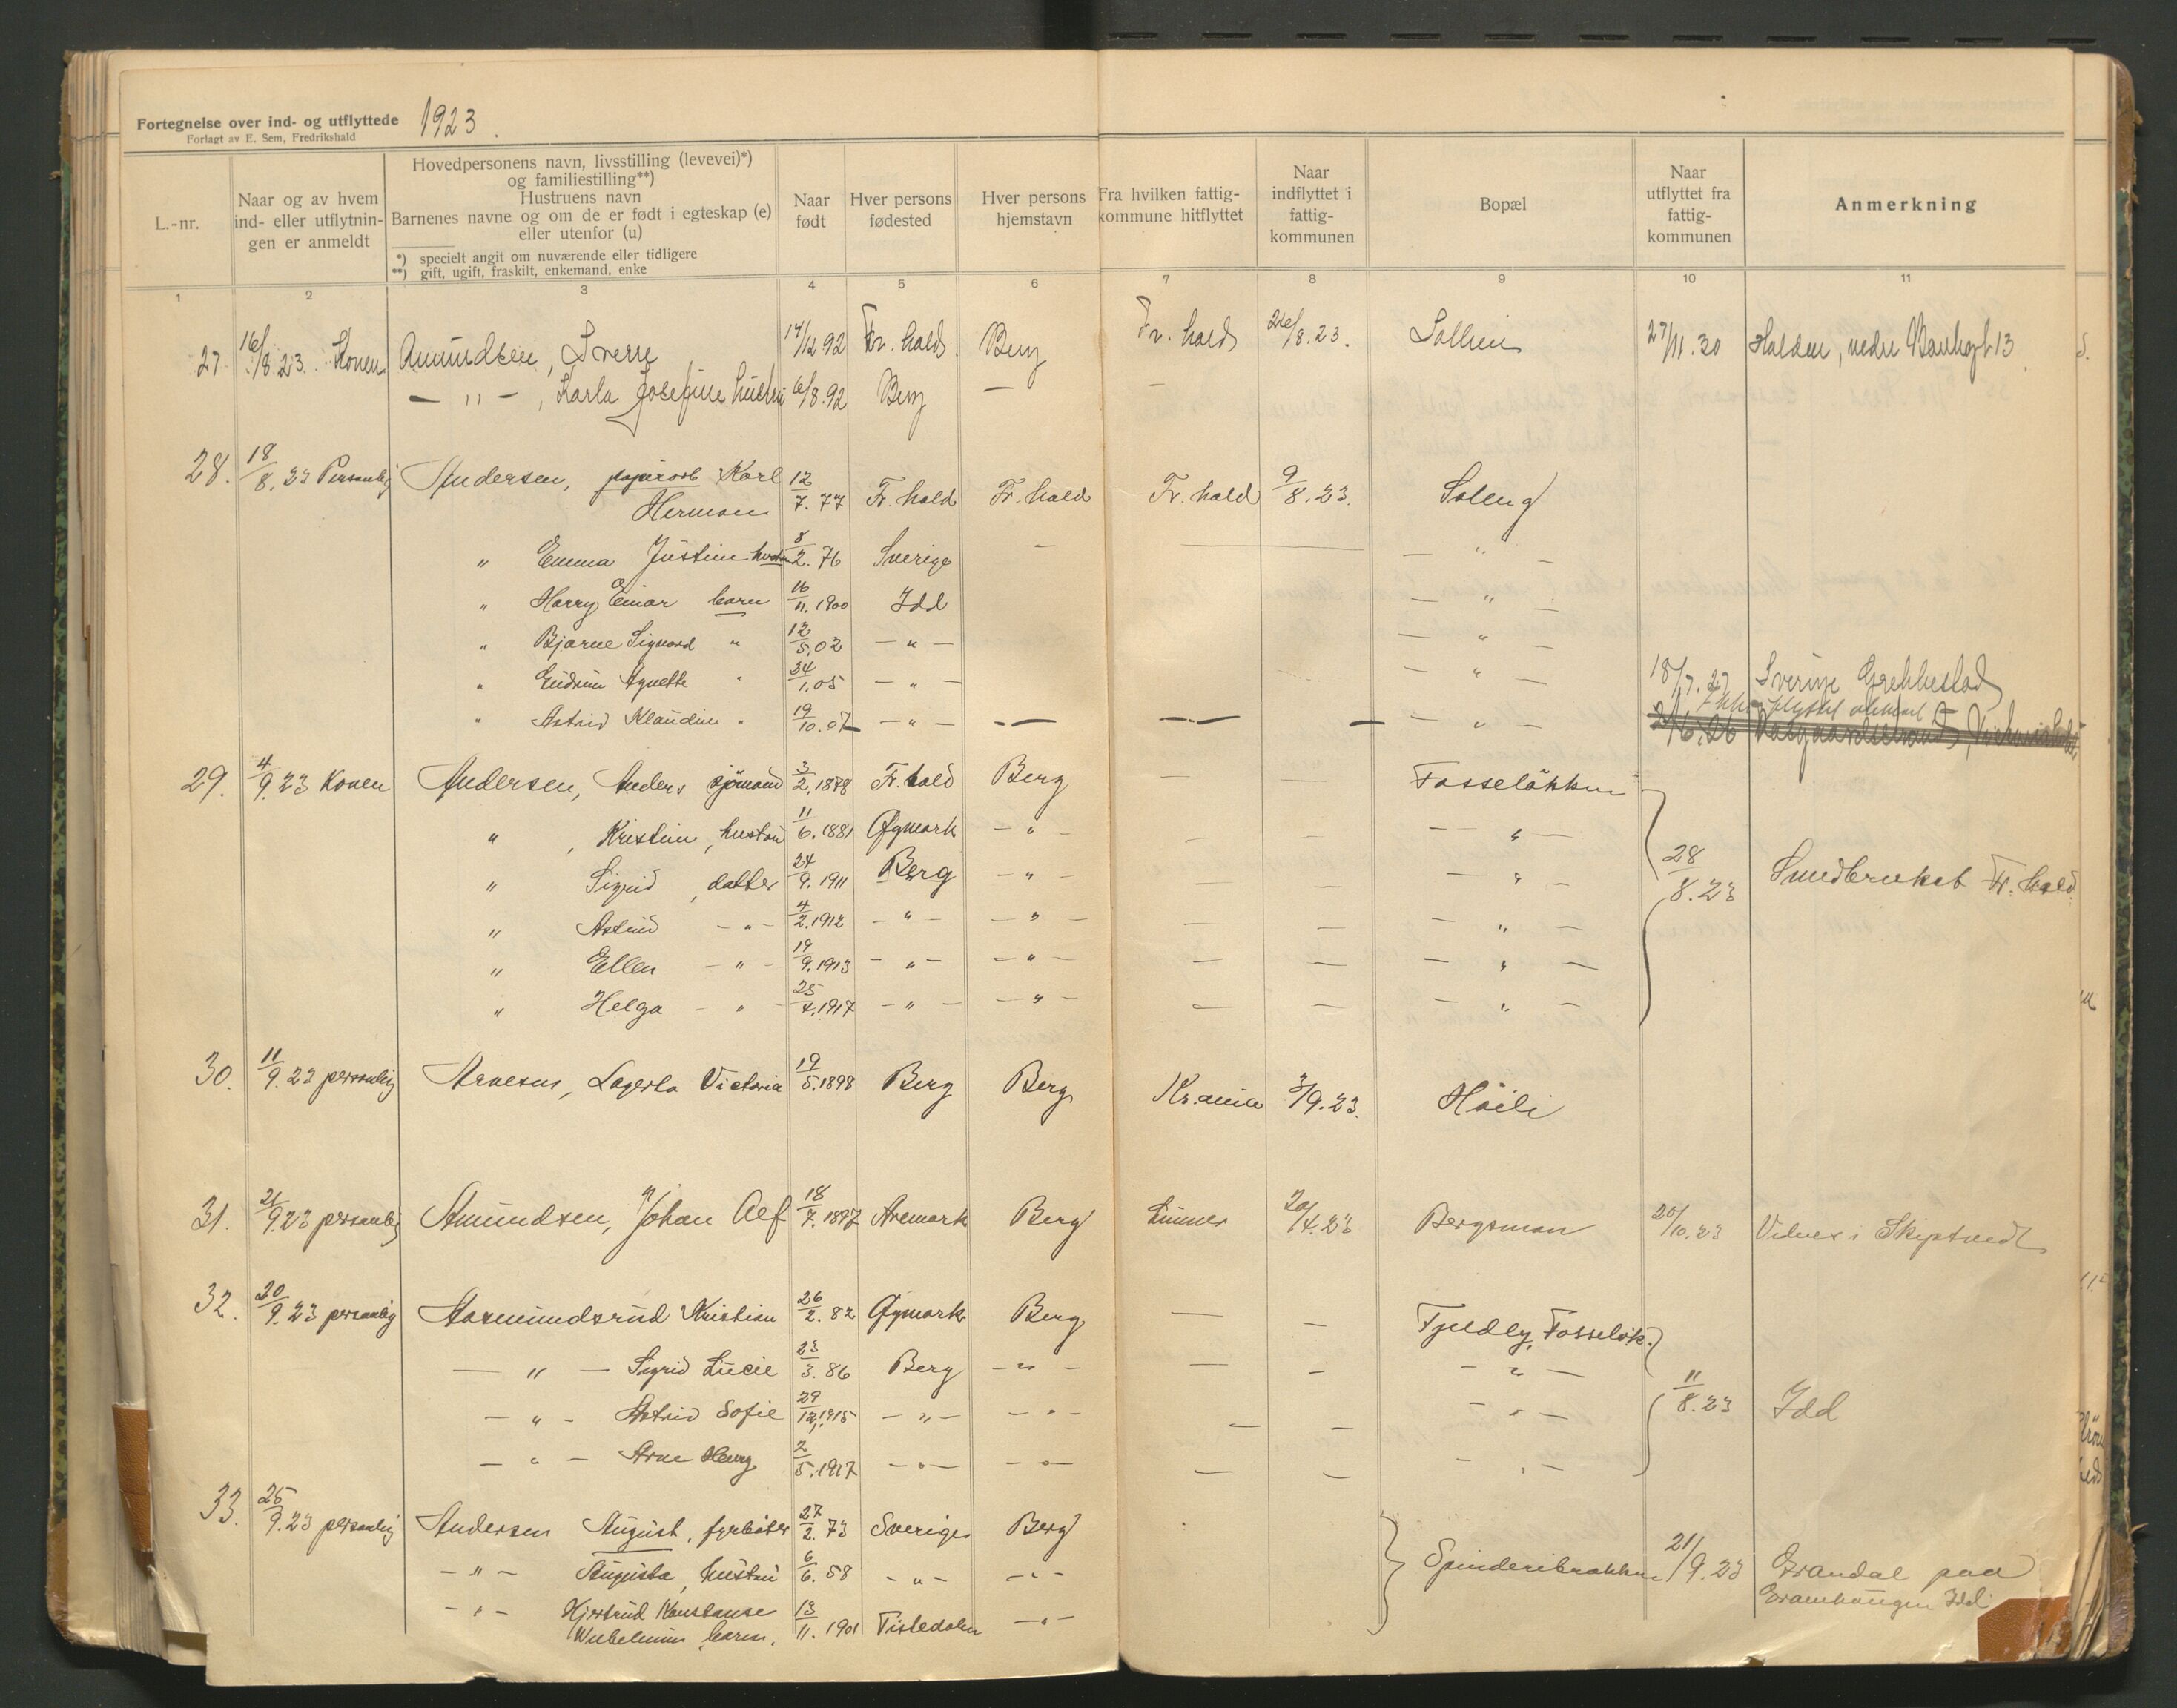 Fortegnelse over ind- og utflyttede 1923.
Forlagt av E. Sem, Fredrikshald
L.-nr.
Naar og av hvem
ind- eller utflytnin-
gen er anmeldt
Hovedpersonens navn, livsstilling (levevei)*)
og familiestilling**)
Hustruens navn
Barnenes navne og om de er født i egteskap (e)
eller utenfor (u)
*) specielt angit om nuværende eller tidligere
**) gift, ugift, fraskilt, enkemand, enke
Naar
født
Hver persons
fødested
Hver persons
hjemstavn
Fra hvilken fattig-
kommune hitflyttet
Naar
indflyttet i
fattig-
kommunen
Bopæl
Naar
utflyttet fra
fattig-
kommunen
Anmerkning
1 2 3 4 5 6 7 8 9 10 11
27 16/8.23. Konen Amundsen, Sverre 14/12 92 Fr. hald Berg Fr. hald 26/8.23. 27/11.30 Halden, nedre 13
— " — , Karla Josefine hustru 6/8.92 Berg — —
28. 18/8.23 Personlig Andersen, papirarb Karl 12/7.77 Fr. hald Fr. hald Fr. hald 9/8.23. Soleng
Herman
" Emma Justine hustru 8/2.76 Sverige — — — " —
" Harry Einar barn 16/11.1900 Idd — " —
" Bjarne Sigvard " 12/5.02 — " — — " —
" Gudrun Agnette " 24/1.05 — " — — " — 18/7.27 Sverige Grebbestad
" Astrid Klaudine " 19/10.07 — " — — — — — " — 2/6.26
29. 4/9.23 Konen Andersen, Anders sjömand 3/2.1878 Fr. hald Berg — — Fosselökken
" , Kristine, hustru 11/6.1881 Øymark — " — — — — " —
" Sigrid, datter 24/9.1911 Berg — " — — — — " — 28/8.23 Smedbruket Fr. hald
" Astrid — " — 4/2.1912 — " — — " — — — — " —
" Ellen — " — 19/9.1913 — " — — " — — — — " —
" Helga — " — 25/4.1917 — " — — " — — — — " —
30. 11/9.23 personlig Arnesen, Lagerta Victoria 19/5.1898 Berg Berg Kr.ania 3/9.23. Höili
31. 21/9.23 personlig Amundsen, Johan Alf 18/7.1897 Aremark Berg Lunner 20/4.23 Bergsmon 20/10.23 i Skiptvedt
32. 20/9.23 personlig Aasmundsrud Kristian 26/2.82 Øymark Berg — — Fjeldly, Fosselök.
— " — Sigrid Lucie 23/3.86 Berg — " — — — — " —
— " — Astrid Sofie 29/12.1915 — " — — " — — — — " — 11/8.23 Idd
— " — Arne Henry 2/5.1917 — " — — " — — — — " —
33. 25/9.23 personlig Andersen August, fyrböter 27/2.73 Sverige Berg
— " — Augusta, hustru 6/6.58 — " — — " — Spinderibrakken 21/9.23 Grandal paa
— " — Hjertrud Konstanse 13/11.1901 Tistedalen — " — Idd.
Wilhelmine barn.